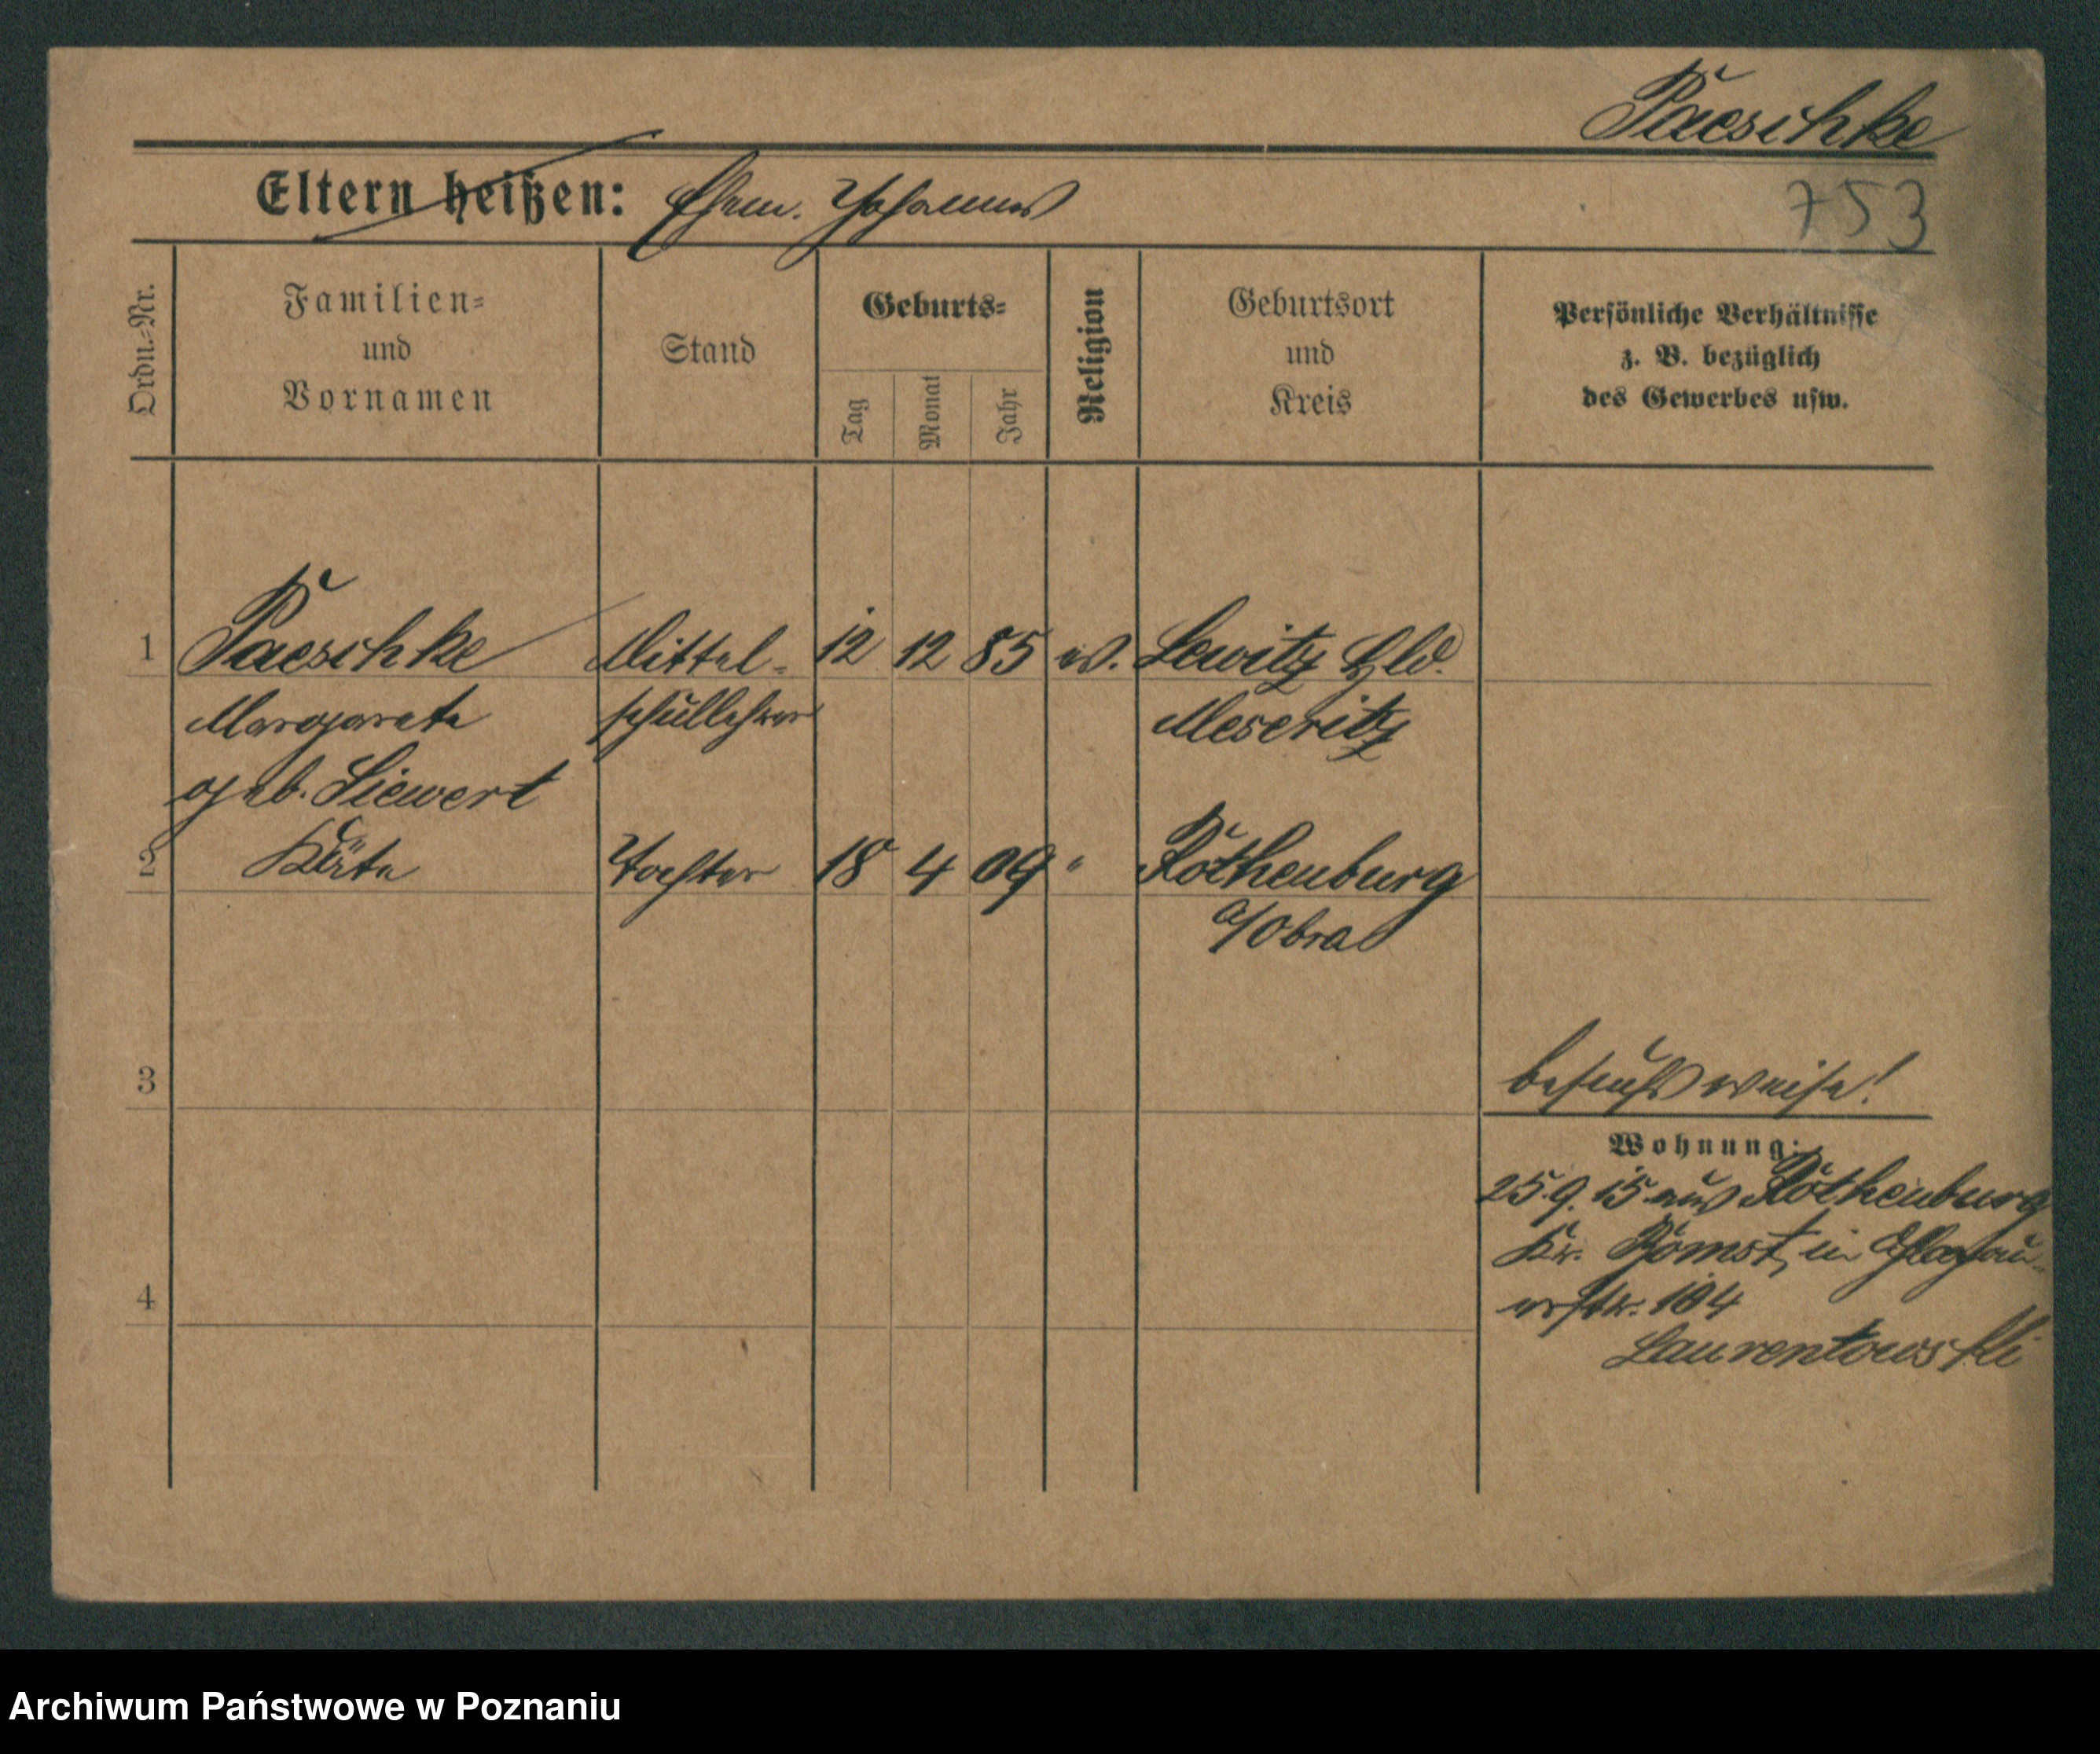 Paeschke
Eltern heißen: Ehem. Johannes
753
Ordn.-Nr.
Familien-
und
Vornamen
Stand
Geburts-
Tag
Monat
Jahr
Religion
Geburtsort
und
Kreis
Persönliche Verhältnisse
z. B. bezüglich
des Gewerbes usw.
1 Paeschke Mittel- 12 12 85 ev. Lewitz Hld.
Margarete schullehrer Meseritz
geb. Siewert
2 Käte Tochter 18 4 09 " Rothenburg
a/Obra
3
besuchsweise!
Wohnung:
25.9.15 aus Rothenburg
Kr. Bomst, in Glogau-
4
erstr. 104
Laurentowski
Archiwum Państwowe w Poznaniu